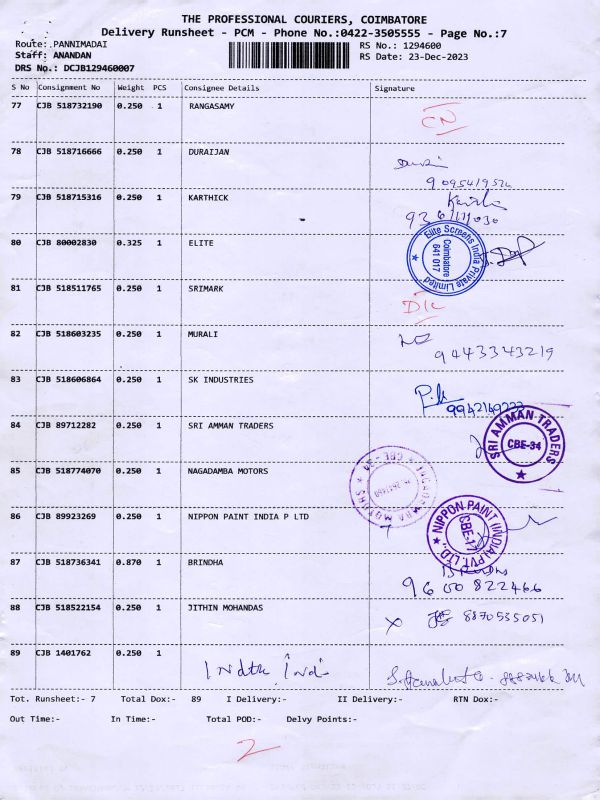 THE PROFESSIONAL COURIERS, COIMBATORE
Delivery Runsheet - PCM - Phone No.:0422-3505555 - Page No.:7
Route: PANNIMADAI
RS No.: 1294600
Staff: ANANDAN
RS Date: 23-Dec-2023
DRS No.: DCJB129460007
S No Consignment No Weight PCS Consignee Details Signature
77 CJB 518732190 0.250 1 RANGASAMY
CN
78 CJB 518716666 0.250 1 DURAIJAN
79 CJB 518715316 0.250 1 KARTHICK
80 CJB 80002830 0.325 1 ELITE
Elite Screens India Private Limited
Coimbatore
641 017
81 CJB 518511765 0.250 1 SRIMARK
82 CJB 518603235 0.250 1 MURALI
9443343219
83 CJB 518606864 0.250 1 SK INDUSTRIES
84 CJB 89712282 0.250 1 SRI AMMAN TRADERS
SRI AMMAN TRADERS
CBE-34
85 CJB 518774070 0.250 1 NAGADAMBA MOTORS
86 CJB 89923269 0.250 1 NIPPON PAINT INDIA P LTD
NIPPON PAINT (INDIA) PVT. LTD.,
CBE-17
87 CJB 518736341 0.870 1 BRINDHA
9600822466
88 CJB 518522154 0.250 1 JITHIN MOHANDAS
8870535051
89 CJB 1401762 0.250 1
Tot. Runsheet:- 7 Total Dox:- 89 I Delivery:- II Delivery:- RTN Dox:-
Out Time:- In Time:- Total POD:- Delvy Points:-
2